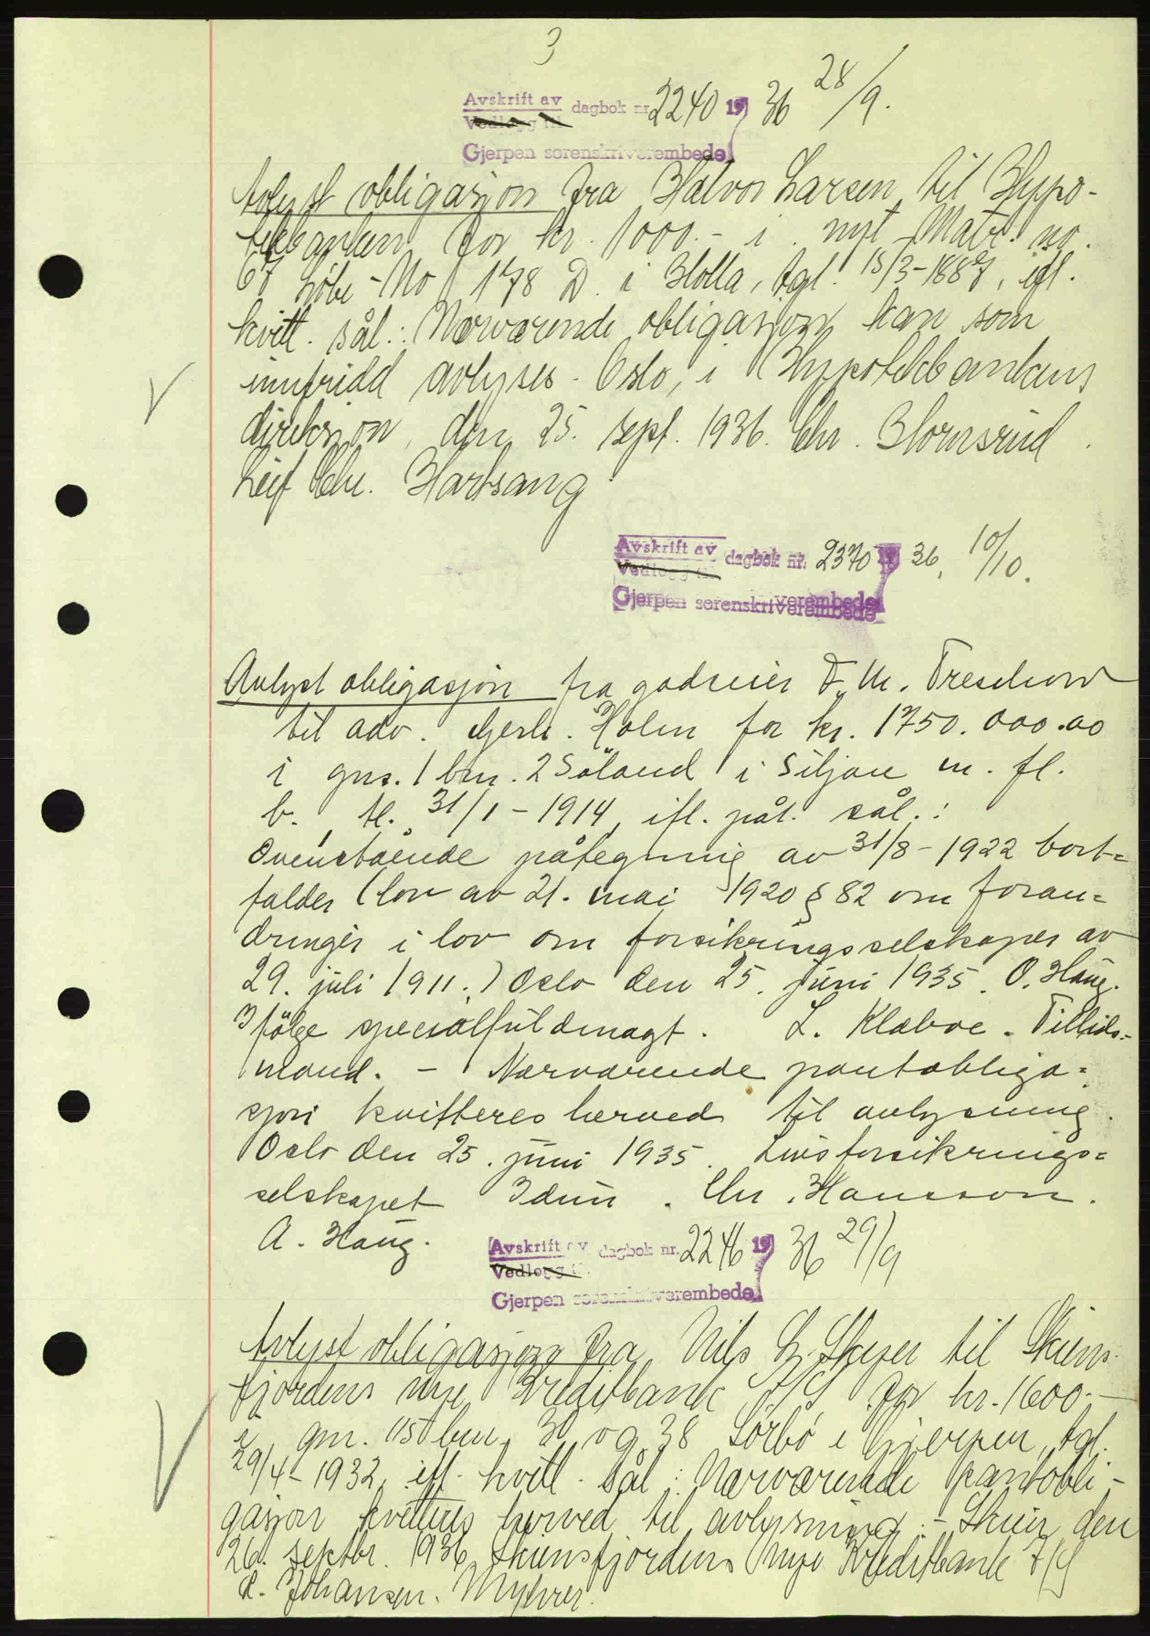 3
Avskrift av dagbok nr. 2240 19 36 28/9.
Vedlegg til
Gjerpen sorenskriverembede
Avlyst obligasjon fra Halvor Larsen til Hypo-
tekbanken for kr. 1000.- i nytt Matr. no.
67 Løbe-No 178 D. i Holla, tgl. 15/3-1887, ifl.
kvitt. sål.: Nærværende obligasjon kan som
innfridd avlyses. Oslo, i Hypotekbankens
direksjon, den 25. sept. 1936. Chr. Hornsrud.
Leif Chr. Hartsang
Avskrift av dagbok nr. 2370 19 36, 10/10.
Vedlegg til
Gjerpen sorenskriverembede
Avlyst obligasjon fra godseier F. M. Treschow
til adv. Gerh. Holm for kr. 1750.000.00
i gnr. 1 bnr. 2 Søland i Siljan m. fl.
b. tl. 31/1-1914, ifl. påt. sål.:
Ovenstående påtegning av 31/8-1922 bort=
falder (lov av 21. mai 1920 § 82 om foran=
dringer i lov om forsikringsselskaper av
29. juli 1911.) Oslo den 25. juni 1935. O. Haug.
Ifølge specialfuldmagt. L. Klæboe. Tillids=
mand. - Nærværende pantobliga=
sjon kvitteres herved til avlysning.
Oslo den 25. juni 1935. Livsforsikrings=
selskapet Idun. Chr. Hansson.
A. Haug.
Avskrift av dagbok nr. 2246 19 36 29/9
Vedlegg til
Gjerpen sorenskriverembede
Avlyst obligasjon fra Nils G. Skyer til Skiens-
fjordens nye Kreditbank A/S for kr. 1600.-
i gnr. 115 bnr. 30 og 38 Sørbø i Gjerpen, tgl.
29/4-1932, ifl. kvitt. sål.: Nærværende pantobli-
gasjon kvitteres herved til avlysning. - Skien, den
26. septbr. 1936 Skiensfjordens nye Kreditbank A/S
L. Johansen. Myhrer.